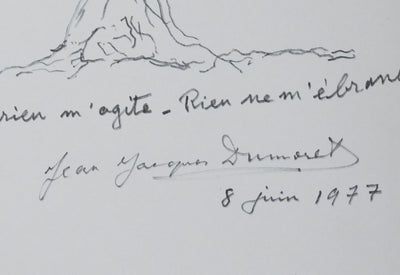 rien m'agite - Rien ne m'ébran
Jean Jacques Dumoret
8 juin 1977